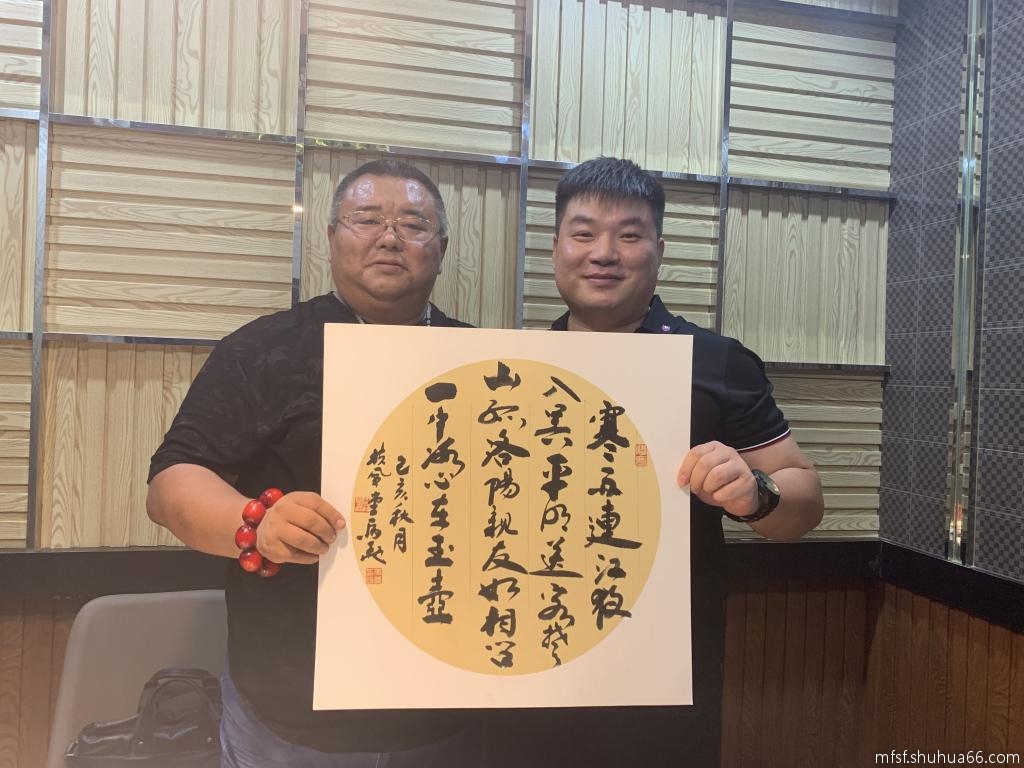 寒雨連江夜
入吴平明送客楚
山孤洛陽親友如相问
一片冰心在玉壺
己亥秋月
風堂
mfsf.shuhua66.com